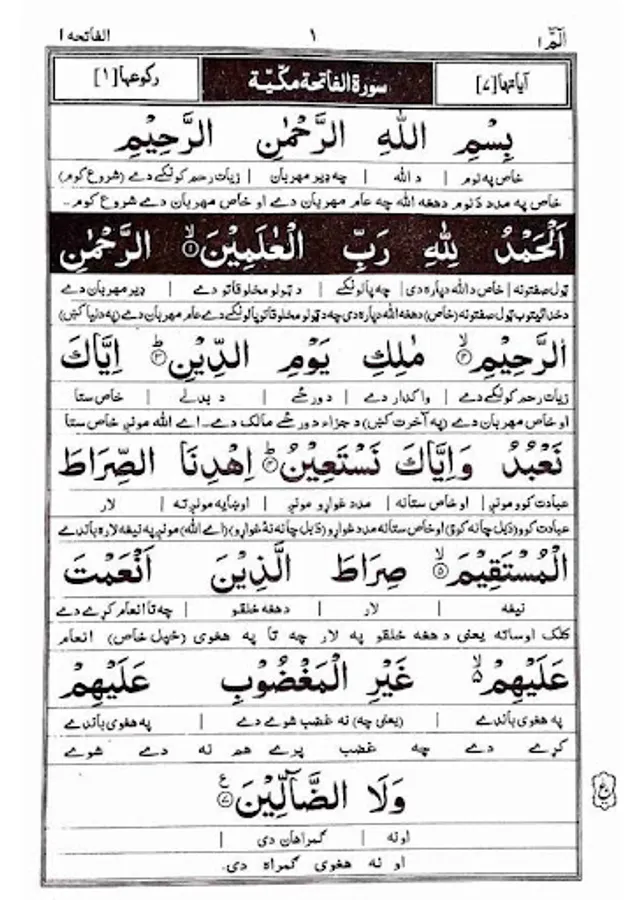 الٓمّٓ ۱ ۱ الفاتحه ۱
آیاتها [۷] سورة الفاتحة مكّيّة رکوعها [۱]
بِسْمِ اللّٰهِ الرَّحْمٰنِ الرَّحِيْمِ
خاص په نوم | د الله | چه ډیر مهربان | زیات رحم کونکے دے (شروع کوم)
خاص په مدد د نوم دهغه الله چه عام مهربان دے او خاص مهربان دے شروع کوم۔
اَلْحَمْدُ لِلّٰهِ رَبِّ الْعٰلَمِيْنَ ۙ﴿۱﴾ الرَّحْمٰنِ
ټول صفتونه | خاص د الله دپاره دی | چه پالونکے | د ټولو مخلوقاتو دے | ډیر مهربان دے
دخدائیتوب ټول صفتونه (خاص) دهغه الله دپاره دی چه د ټولو مخلوقاتو پالونکے دے عام مهربان دے (په دنیا کښ)
الرَّحِيْمِ ۙ﴿۲﴾ مٰلِكِ يَوْمِ الدِّيْنِ ؕ﴿۳﴾ اِيَّاكَ
زیات رحم کونکے دے | واکدار دے | د ورځے | د بدلے | خاص ستا
او خاص مهربان دے (په آخرت کښ) د جزاء د ورځے مالک دے۔ اے الله مونږ خاص ستا
نَعْبُدُ وَاِيَّاكَ نَسْتَعِيْنُ ؕ﴿۴﴾ اِهْدِنَا الصِّرَاطَ
عبادت کوو مونږ | او خاص ستانه | مدد غواړو مونږ | اوښایه مونږ ته | لار
عبادت کوو (د بل چا نه کوو) او خاص ستانه مدد غواړو (د بل چا نه نه غواړو) (اے الله) مونږ په نیغه لاره باندے
الْمُسْتَقِيْمَ ۙ﴿۵﴾ صِرَاطَ الَّذِيْنَ اَنْعَمْتَ
نیغه | لار | د هغه خلقو | چه تا انعام کړے دے
کلک اوساته یعنی د هغه خلقو په لار چه تا په هغوی (خپل خاص) انعام
عَلَيْهِمْ ۙ۬ غَيْرِ الْمَغْضُوْبِ عَلَيْهِمْ
په هغوی باندے | (یعنی چه) نه غضب شوے دے | په هغوی باندے
کړے دے چه غضب پرے هم نه دے شوے
وَلَا الضَّآلِّيْنَ ﴿۷﴾ ع
او نه | گمراهان دی |
او نه هغوی گمراه دی۔